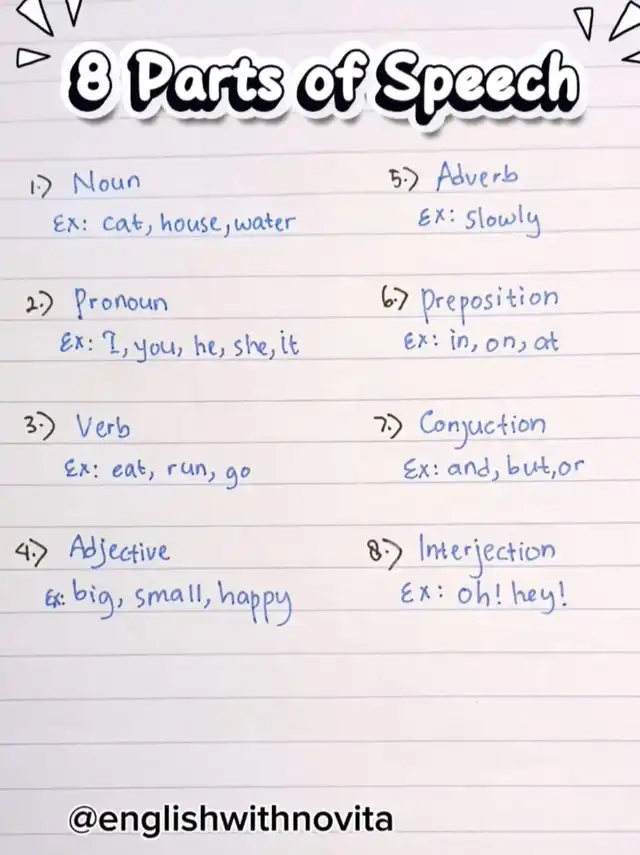 8 Parts of Speech
1.) Noun
Ex: cat, house, water
2.) Pronoun
Ex: I, you, he, she, it
3.) Verb
Ex: eat, run, go
4.) Adjective
Ex: big, small, happy
5.) Adverb
Ex: slowly
6.) Preposition
Ex: in, on, at
7.) Conjuction
Ex: and, but, or
8.) Interjection
Ex: oh! hey!
@englishwithnovita